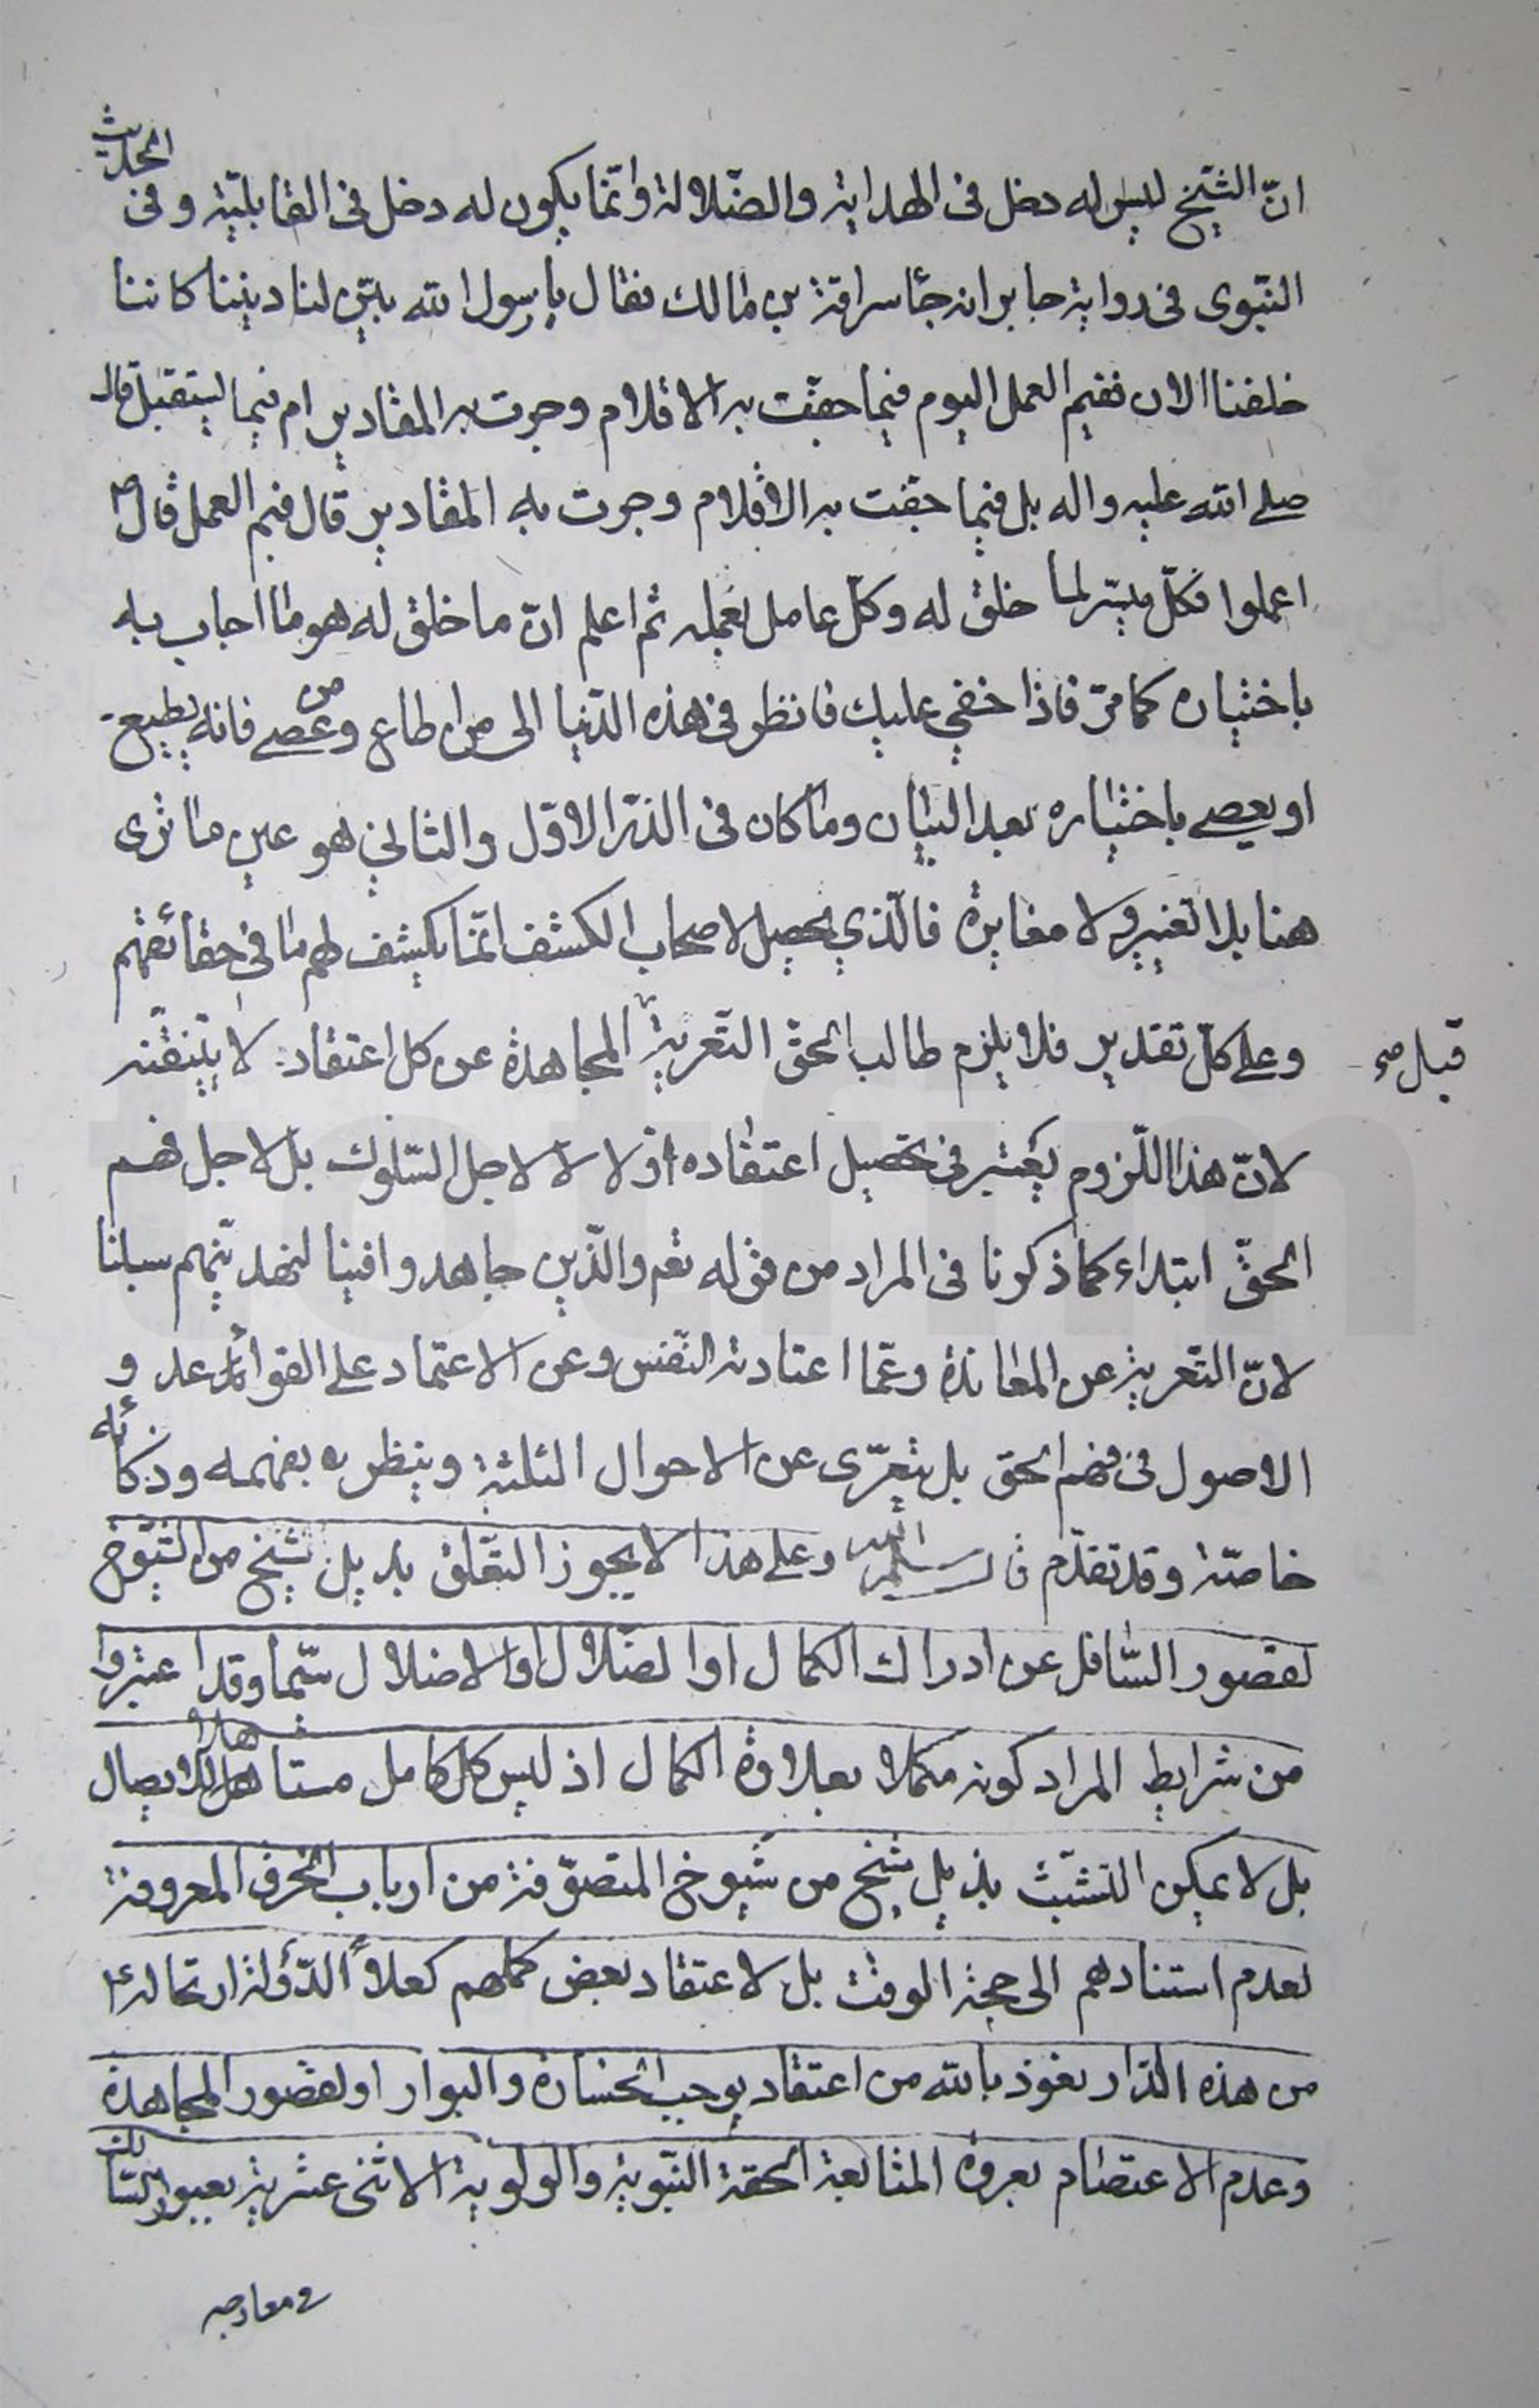 انّ الشيخ ليس له دخل فى الهداية والضّلالة وانّما يكون له دخل فى القابليّة وفى الحديث
النّبوى فى رواية جابر انه جآء سراقة بن مالك فقال يا رسول الله بيّن لنا ديننا كاننا
خلقنا الان ففيم العمل اليوم فيما جفّت به الاقلام وجرت به المقادير ام فيما يستقبل قال
صلى الله عليه واله بل فيما جفت به الاقلام وجرت به المقادير قال ففيم العمل قال ص
اعملوا فكلّ ميسّر لما خلق له وكلّ عامل بعمله ثم اعلم انّ ما خلق له هو ما اجاب به
باختياره كما مرّ فاذا خفى عليك فانظر فى هذه الدّنيا الى من اطاع ومن عصى فانه يطيع
او يعصى باختياره بعد البيان وما كان فى الذّر الاوّل والثانى هو عين ما ترى
هنا بلا تغيير ولا مغايرة فالّذي يحصل لاصحاب الكشف انّما يكشف لهم ما فى حقائقهم
وعلى كلّ تقدير فلا يلزم طالب الحقّ التّعرية المجاهدة عن كل اعتقاد لا يتيقّنه
قبل ص
لانّ هذا اللّزوم يعتبر فى تحصيل اعتقاده اوّلا لا لاجل السّلوك بل لاجل فهم
الحقّ ابتداء كما ذكرنا فى المراد من قوله تعم والّذين جاهدوا فينا لنهدينّهم سبلنا
لانّ التّعرية عن المعاندة وعمّا اعتادته النّفس وعن الاعتماد على القواعد و
الاصول فى فهم الحق بل يتعرّى عن الاحوال الثلثة وينظر بفهمه وذكائه
خاصّة وقد تقدّم قال سلمه الله وعلى هذا لا يجوز التعّلق بذيل شيخ من الشّيوخ
لقصور السّافل عن ادراك الكمال او الضّلال او الاضلال سيّما وقد اعتبروا
من شرايط المراد كونه مكملا بعلاوة الكمال اذ ليس كل كامل مستاهلا للايصال
بل لا يمكن التشبّث بذيل شيخ من شيوخ المتصوّفة من ارباب الخرق المعروفة
لعدم استنادهم الى حجة الوقت بل لاعتقاد بعض كملهم كعلاء الدّولة ارتحاله ع
من هذه الدّار نعوذ بالله من اعتقاد يوجب الخسارة والبوار او لقصور المجاهدة
وعدم الاعتصام بعروة المتابعة الحقة النّبوية والولوية الاثنى عشرية بعيوب السّالك
ومعارجه